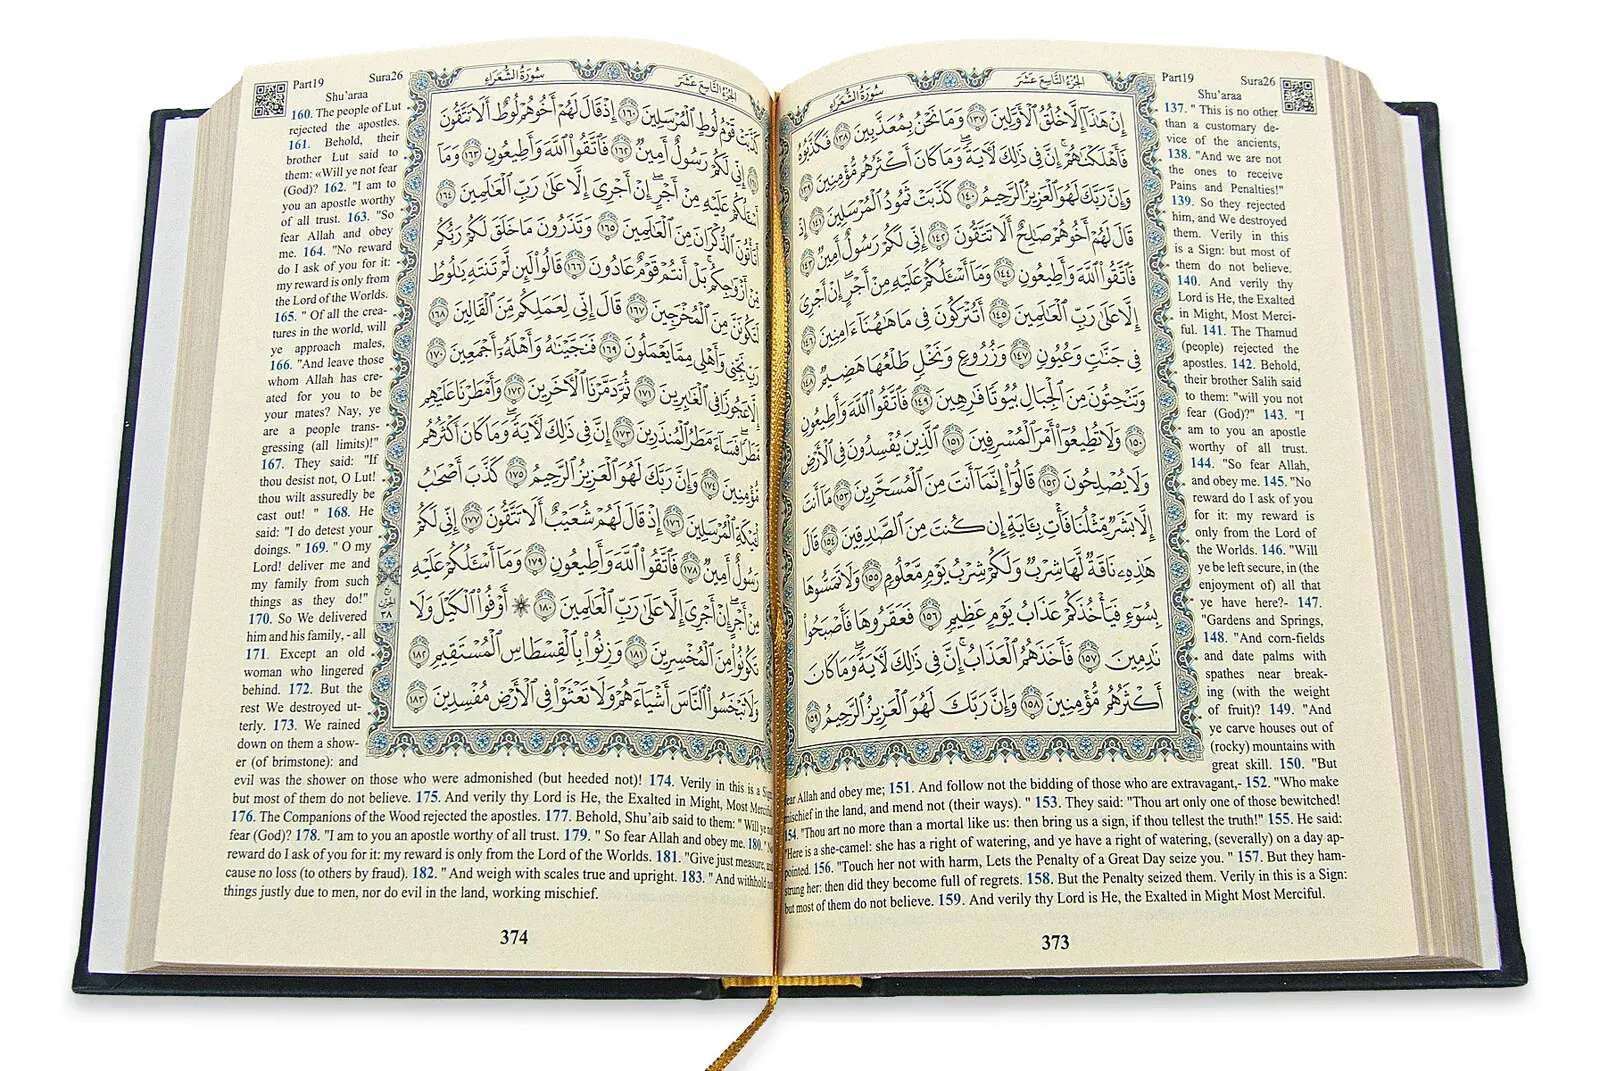 Part19 Sura26
Shu’araa
الجزء التاسع عشر
سورة الشعراء
إِنْ هَٰذَا إِلَّا خُلُقُ الْأَوَّلِينَ ١٣٧ وَمَا نَحْنُ بِمُعَذَّبِينَ ١٣٨ فَكَذَّبُوهُ
فَأَهْلَكْنَاهُمْ إِنَّ فِي ذَٰلِكَ لَآيَةً وَمَا كَانَ أَكْثَرُهُم مُّؤْمِنِينَ ١٣٩
وَإِنَّ رَبَّكَ لَهُوَ الْعَزِيزُ الرَّحِيمُ ١٤٠ كَذَّبَتْ ثَمُودُ الْمُرْسَلِينَ ١٤١ إِذْ
قَالَ لَهُمْ أَخُوهُمْ صَالِحٌ أَلَا تَتَّقُونَ ١٤٢ إِنِّي لَكُمْ رَسُولٌ أَمِينٌ ١٤٣
فَاتَّقُوا اللَّهَ وَأَطِيعُونِ ١٤٤ وَمَا أَسْأَلُكُمْ عَلَيْهِ مِنْ أَجْرٍ إِنْ أَجْرِيَ
إِلَّا عَلَىٰ رَبِّ الْعَالَمِينَ ١٤٥ أَتُتْرَكُونَ فِي مَا هَاهُنَا آمِنِينَ ١٤٦
فِي جَنَّاتٍ وَعُيُونٍ ١٤٧ وَزُرُوعٍ وَنَخْلٍ طَلْعُهَا هَضِيمٌ ١٤٨
وَتَنْحِتُونَ مِنَ الْجِبَالِ بُيُوتًا فَارِهِينَ ١٤٩ فَاتَّقُوا اللَّهَ وَأَطِيعُونِ
١٥٠ وَلَا تُطِيعُوا أَمْرَ الْمُسْرِفِينَ ١٥١ الَّذِينَ يُفْسِدُونَ فِي الْأَرْضِ
وَلَا يُصْلِحُونَ ١٥٢ قَالُوا إِنَّمَا أَنتَ مِنَ الْمُسَحَّرِينَ ١٥٣ مَا أَنتَ
إِلَّا بَشَرٌ مِّثْلُنَا فَأْتِ بِآيَةٍ إِن كُنتَ مِنَ الصَّادِقِينَ ١٥٤ قَالَ
هَٰذِهِ نَاقَةٌ لَّهَا شِرْبٌ وَلَكُمْ شِرْبُ يَوْمٍ مَّعْلُومٍ ١٥٥ وَلَا تَمَسُّوهَا
بِسُوءٍ فَيَأْخُذَكُمْ عَذَابُ يَوْمٍ عَظِيمٍ ١٥٦ فَعَقَرُوهَا فَأَصْبَحُوا
نَادِمِينَ ١٥٧ فَأَخَذَهُمُ الْعَذَابُ إِنَّ فِي ذَٰلِكَ لَآيَةً وَمَا كَانَ
أَكْثَرُهُم مُّؤْمِنِينَ ١٥٨ وَإِنَّ رَبَّكَ لَهُوَ الْعَزِيزُ الرَّحِيمُ ١٥٩
137. " This is no other
than a customary de-
vice of the ancients,
138. "And we are not
the ones to receive
Pains and Penalties!"
139. So they rejected
him, and We destroyed
them. Verily in this
is a Sign: but most of
them do not believe.
140. And verily thy
Lord is He, the Exalted
in Might, Most Merci-
ful. 141. The Thamud
(people) rejected the
apostles. 142. Behold,
their brother Salih said
to them: "will you not
fear (God)?" 143. "I
am to you an apostle
worthy of all trust.
144. "So fear Allah,
and obey me. 145. "No
reward do I ask of you
for it: my reward is
only from the Lord of
the Worlds. 146. "Will
ye be left secure, in (the
enjoyment of) all that
ye have here?- 147.
"Gardens and Springs,
148. "And corn-fields
and date palms with
spathes near break-
ing (with the weight
of fruit)? 149. "And
ye carve houses out of
(rocky) mountains with
great skill. 150. "But
fear Allah and obey me; 151. And follow not the bidding of those who are extravagant,- 152. "Who make
mischief in the land, and mend not (their ways). " 153. They said: "Thou art only one of those bewitched!
154. "Thou art no more than a mortal like us: then bring us a sign, if thou tellest the truth!" 155. He said:
"Here is a she-camel: she has a right of watering, and ye have a right of watering, (severally) on a day ap-
pointed. 156. "Touch her not with harm, Lets the Penalty of a Great Day seize you. " 157. But they ham-
strung her: then did they become full of regrets. 158. But the Penalty seized them. Verily in this is a Sign:
but most of them do not believe. 159. And verily thy Lord is He, the Exalted in Might Most Merciful.
373
Part19 Sura26
Shu’araa
الجزء التاسع عشر
سورة الشعراء
كَذَّبَتْ قَوْمُ لُوطٍ الْمُرْسَلِينَ ١٦٠ إِذْ قَالَ لَهُمْ أَخُوهُمْ لُوطٌ أَلَا تَتَّقُونَ
١٦١ إِنِّي لَكُمْ رَسُولٌ أَمِينٌ ١٦٢ فَاتَّقُوا اللَّهَ وَأَطِيعُونِ ١٦٣ وَمَا
أَسْأَلُكُمْ عَلَيْهِ مِنْ أَجْرٍ إِنْ أَجْرِيَ إِلَّا عَلَىٰ رَبِّ الْعَالَمِينَ ١٦٤
أَتَأْتُونَ الذُّكْرَانَ مِنَ الْعَالَمِينَ ١٦٥ وَتَذَرُونَ مَا خَلَقَ لَكُمْ رَبُّكُم
مِّنْ أَزْوَاجِكُم بَلْ أَنتُمْ قَوْمٌ عَادُونَ ١٦٦ قَالُوا لَئِن لَّمْ تَنتَهِ يَا لُوطُ
لَتَكُونَنَّ مِنَ الْمُخْرَجِينَ ١٦٧ قَالَ إِنِّي لِعَمَلِكُم مِّنَ الْقَالِينَ ١٦٨
رَبِّ نَجِّنِي وَأَهْلِي مِمَّا يَعْمَلُونَ ١٦٩ فَنَجَّيْنَاهُ وَأَهْلَهُ أَجْمَعِينَ ١٧٠
إِلَّا عَجُوزًا فِي الْغَابِرِينَ ١٧١ ثُمَّ دَمَّرْنَا الْآخَرِينَ ١٧٢ وَأَمْطَرْنَا عَلَيْهِم
مَّطَرًا فَسَاءَ مَطَرُ الْمُنذَرِينَ ١٧٣ إِنَّ فِي ذَٰلِكَ لَآيَةً وَمَا كَانَ أَكْثَرُهُم
مُّؤْمِنِينَ ١٧٤ وَإِنَّ رَبَّكَ لَهُوَ الْعَزِيزُ الرَّحِيمُ ١٧٥ كَذَّبَ أَصْحَابُ
لْأَيْكَةِ الْمُرْسَلِينَ ١٧٦ إِذْ قَالَ لَهُمْ شُعَيْبٌ أَلَا تَتَّقُونَ ١٧٧ إِنِّي لَكُمْ
رَسُولٌ أَمِينٌ ١٧٨ فَاتَّقُوا اللَّهَ وَأَطِيعُونِ ١٧٩ وَمَا أَسْأَلُكُمْ عَلَيْهِ
مِنْ أَجْرٍ إِنْ أَجْرِيَ إِلَّا عَلَىٰ رَبِّ الْعَالَمِينَ ١٨٠ أَوْفُوا الْكَيْلَ وَلَا
تَكُونُوا مِنَ الْمُخْسِرِينَ ١٨١ وَزِنُوا بِالْقِسْطَاسِ الْمُسْتَقِيمِ ١٨٢
وَلَا تَبْخَسُوا النَّاسَ أَشْيَاءَهُمْ وَلَا تَعْثَوْا فِي الْأَرْضِ مُفْسِدِينَ ١٨٣
160. The people of Lut
rejected the apostles.
161. Behold, their
brother Lut said to
them: «Will ye not fear
(God)? 162. "I am to
you an apostle worthy
of all trust. 163. "So
fear Allah and obey
me. 164. "No reward
do I ask of you for it:
my reward is only from
the Lord of the Worlds.
165. " Of all the crea-
tures in the world, will
ye approach males,
166. "And leave those
whom Allah has cre-
ated for you to be
your mates? Nay, ye
are a people trans-
gressing (all limits)!"
167. They said: "If
thou desist not, O Lut!
thou wilt assuredly be
cast out! " 168. He
said: "I do detest your
doings. " 169. " O my
Lord! deliver me and
my family from such
things as they do!"
170. So We delivered
him and his family, - all
171. Except an old
woman who lingered
behind. 172. But the
rest We destroyed ut-
terly. 173. We rained
down on them a show-
er (of brimstone): and
evil was the shower on those who were admonished (but heeded not)! 174. Verily in this is a Sign
but most of them do not believe. 175. And verily thy Lord is He, the Exalted in Might, Most Merciful.
176. The Companions of the Wood rejected the apostles. 177. Behold, Shu’aib said to them: " Will ye not
fear (God)? 178. "I am to you an apostle worthy of all trust. 179. " So fear Allah and obey me. 180. " No
reward do I ask of you for it: my reward is only from the Lord of the Worlds. 181. "Give just measure, and
cause no loss (to others by fraud). 182. " And weigh with scales true and upright. 183. " And withhold not
things justly due to men, nor do evil in the land, working mischief.
374